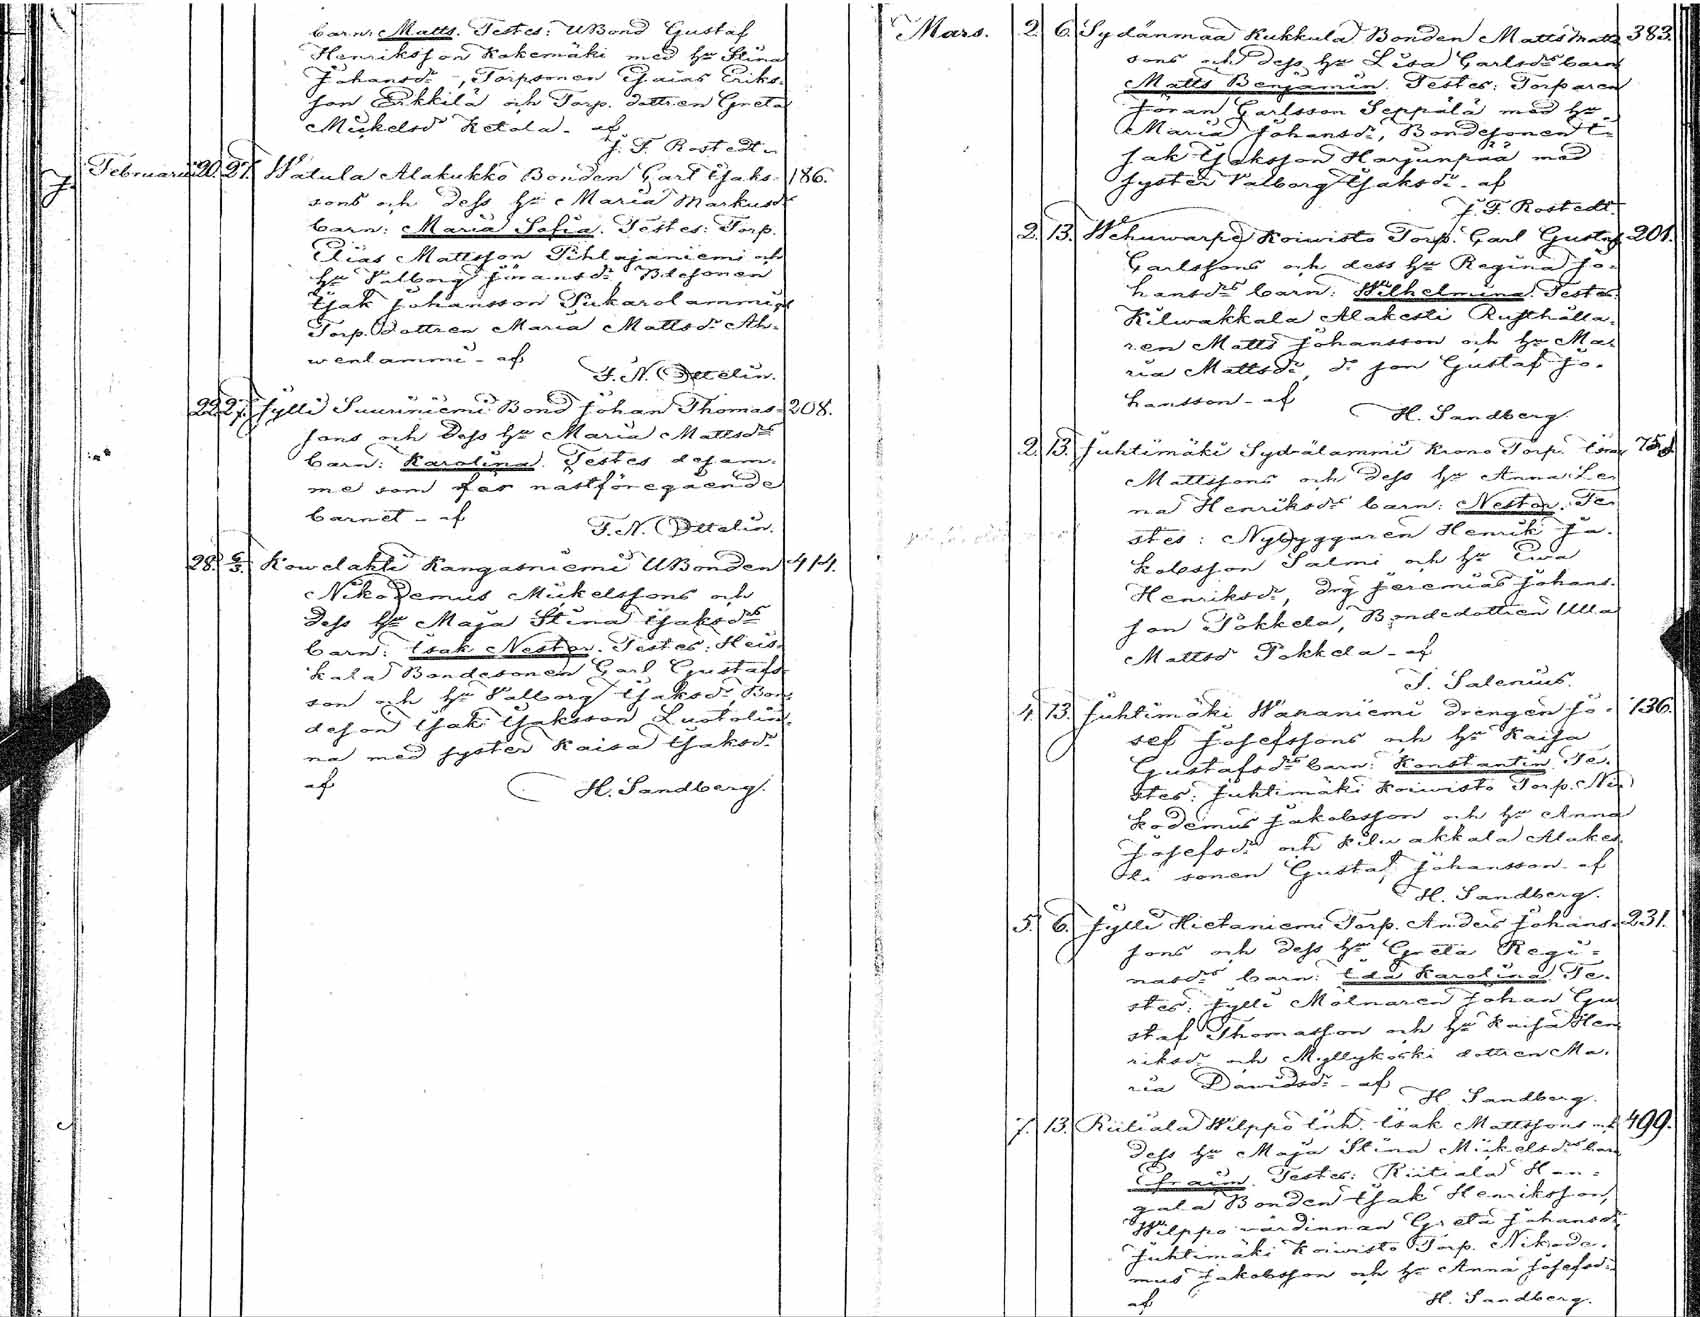 barn: Matts. Testes: UBond Gustaf
Henriksson Kakemäki med hu Stina
Johansdr, Torpsonen Esaias Eriks-
son Erkkilä och Torp. dottren Greta
Mickelsdr Ketola - af
J. F. Rostedt.
Februarii 20. 27. Watula Alakukko Bonden Carl Isaks- 186.
sons och dess hu Maria Markusdr
barn: Maria Sofia. Testes: Torp.
Elias Mattsson Pihlajaniemi och
hu Valborg Göransdr Bdesonen
Isak Johansson Pukarolammi
Torp. dottren Maria Mattsdr Ah-
wenlammi - af
F. N. Ottelin.
22. 27. Jylli Suuriniemi Bond Johan Thomas- 208.
sons och dess hu Maria Mattsdrs
barn: Karolina. Testes desam-
me som för nästföregående
barnet - af
F. N. Ottelin.
28. 6/3. Kowelahti Kangasniemi UBonden 414.
Nikodemus Mickelssons och
dess hu Maja Stina Isaksdrs
barn: Isak Nestor. Testes: Heis-
kala Bondesonen Carl Gustafs-
son och hu Valborg Isaksdr, Bon-
deson Isak Isaksson Luotolin-
na med syster Kaisa Isaksdr
af H. Sandberg.
Mars. 2. 6. Sydänmaa Kukkula Bonden Matts Matts 383.
sons och dess hu Lisa Carlsdrs barn
Matts Benjamin. Testes: Torparen
Göran Carlsson Seppälä med hu
Maria Johansdr, Bondesonen I-
sak Isaksson Harjunpää med
syster Valborg Isaksdr - af
J. F. Rostedt.
2. 13. Wehuwarpe Koiwisto Torp. Carl Gustaf 201.
Carlssons och dess hu Regina Jo-
hansdrs barn: Wilhelmina. Testes:
Kilwakkala Alakesti Rusthålla-
ren Matts Johansson och hu Ma-
ria Mattsdr, dr son Gustaf Jo-
hansson - af
H. Sandberg.
2. 13. Juhtimäki Sydälammi Krono Torp. Israel 758.
Mattssons och dess hu Anna Le-
na Henriksdrs barn: Nestor. Te-
stes: Nybyggaren Henrik Ja-
kobsson Salmi och hu Ewa
Henriksdr, drg Jeremias Johans-
son Pokkela, Bondedottren Ulla
Mattsdr Pokkela - af
J. Salenius.
4. 13. Juhtimäki Waraniemi drengen Jo- 136.
sef Josefssons och hu Kaisa
Gustafsdrs barn: Konstantin. Te-
stes: Juhtimäki Koiwisto Torp. Ni-
kodemus Jakobsson och hu Anna
Josefsdr och Kilwakkala Alakes-
ti sonen Gustaf Johansson - af
H. Sandberg.
5. 6. Jylli Hietaniemi Torp. Anders Johans- 231.
sons och dess hu Greta Regi-
nasdrs barn: Ida Karolina. Te-
stes: Jylli Mölnaren Johan Gu
staf Thomasson och hu Kaisa Hen-
riksdr och Myllykoski dottren Ma-
ria Davidsdr - af
H. Sandberg.
7. 13. Riitiala Wilppo Inh. Isak Mattssons och 499.
dess hu Maja Stina Mickelsdrs barn
Efraim. Testes: Riitiala Han-
gala Bonden Isak Henriksson,
Wilppo värdinnan Greta Johansdr
Juhtimäki Koiwisto Torp. Nikode-
mus Jakobsson och hu Anna Josefsdr
af H. Sandberg.